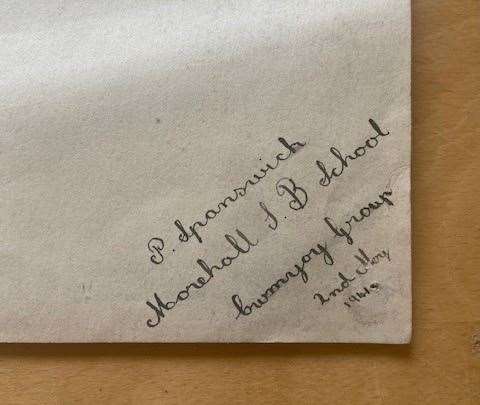 P. Spanswick
Morehall S. B School
Cwmyoy Group
2nd May